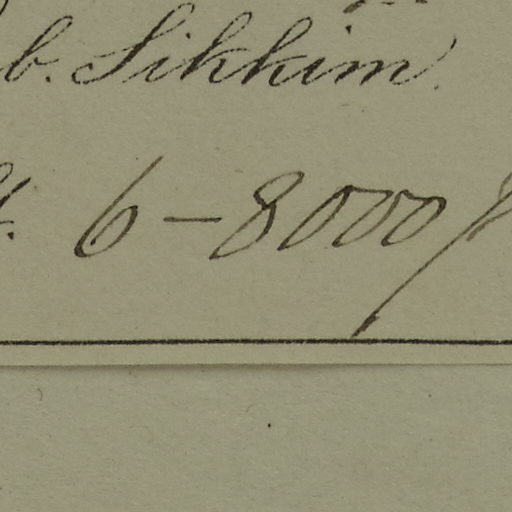 b. Sikkim
6–8000 f